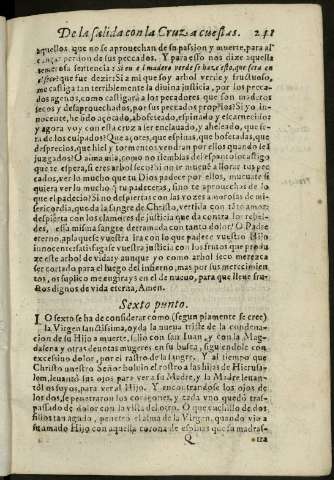 De la salida con la Cruz a cuestas. 241
aquellos que no se aprouechan de su passion y muerte, para al
cançar perdon de sus peccados. Y para esso nos dize aquella
temerosa sentencia: Si en el madero verde se haze esto, que sera en
el seco? que fue dezir: Si a mi que soy arbol verde y fructuoso,
me castiga tan terriblemente la diuina justicia, por los pecca
dos agenos, como castigarà a los peccadores que son maderos
secos y desaprouechados, por sus peccados proprios? Si yo in-
nocente, he sido açotado, abofeteado, espinado y escarnecido: y
agora voy con esta cruz a ser enclauado, y aheleado, que se-
ra de los culpados? Que açotes, que espinas, que bofetadas, que
desprecios, que hiel y tormentos vendran por ellos quando sean
juzgados? O alma mia, como no tiemblas del espantoso castigo
que te espera, si eres arbol seco? Si no te mueue a llorar tus pec
cados, ver lo mucho que tu Dios padece por ellos, mueuate si
quiera ver lo mucho q̃ tu padeceras, sino te aprouechas de lo
que el padecio? Si no despiertas con las vozes amorosas de mi-
sericordia, que da la sangre de Christo, vertida con tãto amor:
despierta con los clamores de justicia que da contra los rebel-
des, essa misma sangre derramada con tanto dolor? O Padre
eterno, aplaquese vuestra ira con lo que padece vuestro Hijo
innocente: satisfagase vuestra justicia con los frutos que produ
ze este arbol de vida: y aunque yo como arbol seco merezca
ser cortado para el fuego del infierno, mas por sus merecimien
tos, os suplico me engirays en el de nueuo, para que lleue fru-
ctos dignos de vida eterna, Amen.
Sexto punto.
LO sexto se ha de considerar como (segun piamente se cree)
la Virgen sanctissima, oyda la nueua triste de la condena-
cion de su Hijo a muerte, salio con san Iuan, y con la Mag-
dalena y otras deuotas mugeres en su busca, siguiendole con
excessiuo dolor, por el rastro de la sangre. Y al tiempo que
Christo nuestro Señor boluio el rostro a las hijas de Hierusa-
lem, leuantò los ojos para ver a su Madre, y la Madre leuan-
tò los suyos, para ver al Hijo. Y encontrandose los ojos de
los dos, se penetraron los coraçones, y cada vno quedò tras-
passado de dolor con la vista del otro. O que cuchillo de dos
filos tan agudo, penetrò el alma de la Virgen, quando vio a
su amado Hijo con aquella corona de espinas que su madras-
Q tra